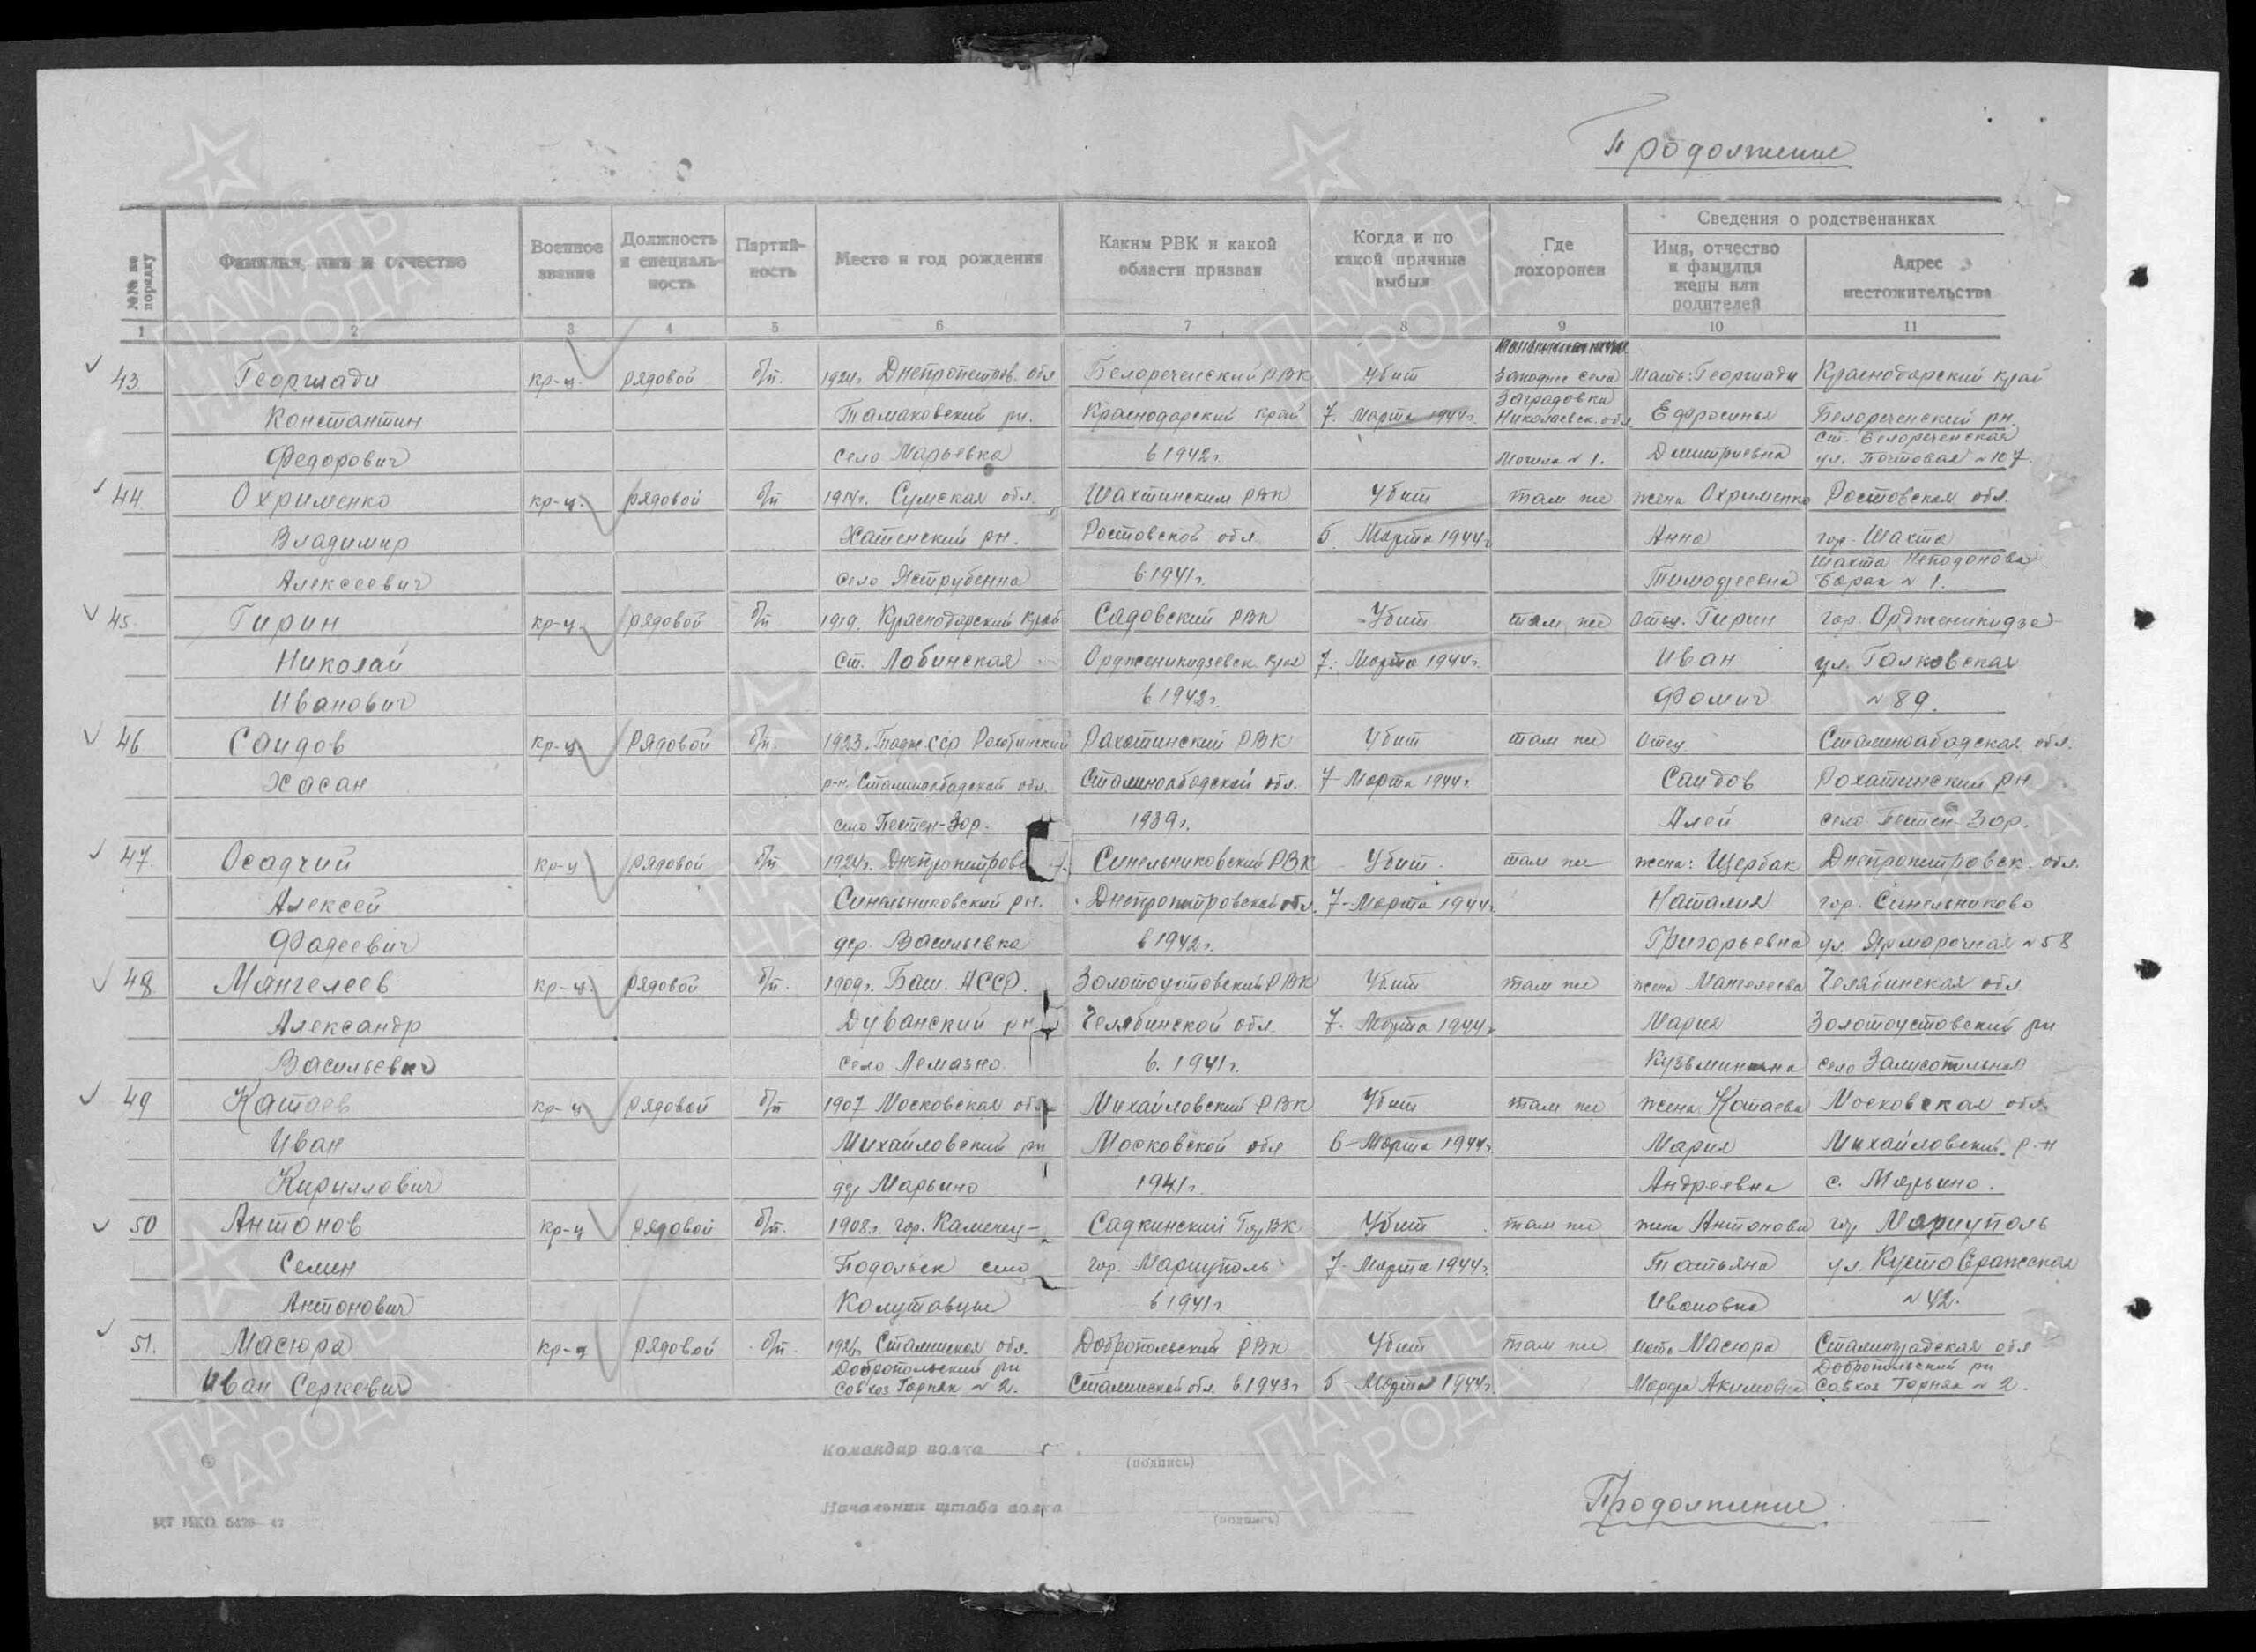 Продолжение
№№ по порядку
Фамилия, имя и отчество
Военное звание
Должность и специальность
Партийность
Место и год рождения
Каким РВК и какой области призван
Когда и по какой причине выбыл
Где похоронен
Сведения о родственниках
Имя, отчество и фамилия жены или родителей
Адрес местожительства
1 2 3 4 5 6 7 8 9 10 11
43. Георгиади кр-ц. рядовой б/п. 1924г. Днепропетров. обл Белореченский РВК Убит Западнее села Мать: Георгиади Краснодарский край
Заградовка
Константин Томаковский рн. Краснодарский край 7. Марта 1944г. Николаевск. обл. Ефросинья Белореченский рн.
ст. Белореченская
Федорович село Марьевка в 1942г. Могила № 1. Дмитриевна ул. Почтовая № 107.
44. Охрименко кр-ц. рядовой б/п 1914г. Сумская обл. Шахтинским РВК Убит там же жена Охрименко Ростовская обл.
Владимир Хатенский рн. Ростовской обл 5. Марта 1944г Анна гор. Шахта
Алексеевич село Яструбенна в 1941г. Тимофеевна Барак № 1.
45. Гирин кр-ц. рядовой б/п 1919. Краснодарский край Садовский РВК Убит там же отец. Гирин гор. Орджоникидзе
Николай ст. Лобинская Орджоникидзевск. края 7. Марта 1944г. Иван ул. Галковская
Иванович в 1942г. Фомич № 89.
46 Саидов кр-ц. рядовой б/п. 1923. Тадж.ССР Рохатинский Рахатинский РВК Убит там же отец Сталинабадская обл.
Хасан р-н. Сталинабадской обл. Сталинабадской обл. 7 Марта 1944г. Саидов Рохатинский рн
село Пестен-Зор. 1939г. Алей село Пестен-Зор.
47. Осадчий кр-ц рядовой б/п 1924г. Днепропетровс Синельниковский РВК Убит. там же жена: Щербак Днепропетровск. обл.
Алексей Синельниковский рн. Днепропетровской обл. 7-Марта 1944г. Наталия гор. Синельниково
Фадеевич дер. Васильевка в 1942г. Григорьевна ул. Ярморочная № 58
48. Мангелеев кр-ц. рядовой б/п. 1909г. Баш. АССР. Золотоустовский РВК Убит там же жена Мангелеева Челябинская обл
Александр Дуванский рн Челябинской обл. 7. Марта 1944г Мария Золотоустовский рн
село Лемазно в. 1941г. Кузьминична село
49 Катаев кр-ц рядовой б/п 1907 Московская обл Михайловский РВК Убит там же жена Катаева Московская обл
Иван Михайловский рн Московской обл 6-Марта 1944г. Мария Михайловский р-н
Кириллович дер Марьино 1941г. Андреевна с. Марьино.
50 Антонов кр-ц рядовой б/п. 1908.г. гор. Каменец- Садкинский ГорВК Убит там же жена Антонова гор Мариуполь
Семин Подольск село гор. Мариуполь 7-Марта 1944г. Татьяна ул.
Антонович в 1941г Ивановна № 42.
51. Масюра кр-ц рядовой б/п. Сталинская обл. Добропольский РВК Убит там же мать Масюра Сталинградская обл
Добропольский рн Добропольский рн
Иван Сергеевич Совхоз Горняк № 2. Сталинской обл. в.1943г 5-Марта 1944г. Марфа Акимовна Совхоз Горняк № 2.
Командир полка
(подпись)
Начальник штаба полка
(подпись)
Продолжение
ПАМЯТЬ НАРОДА